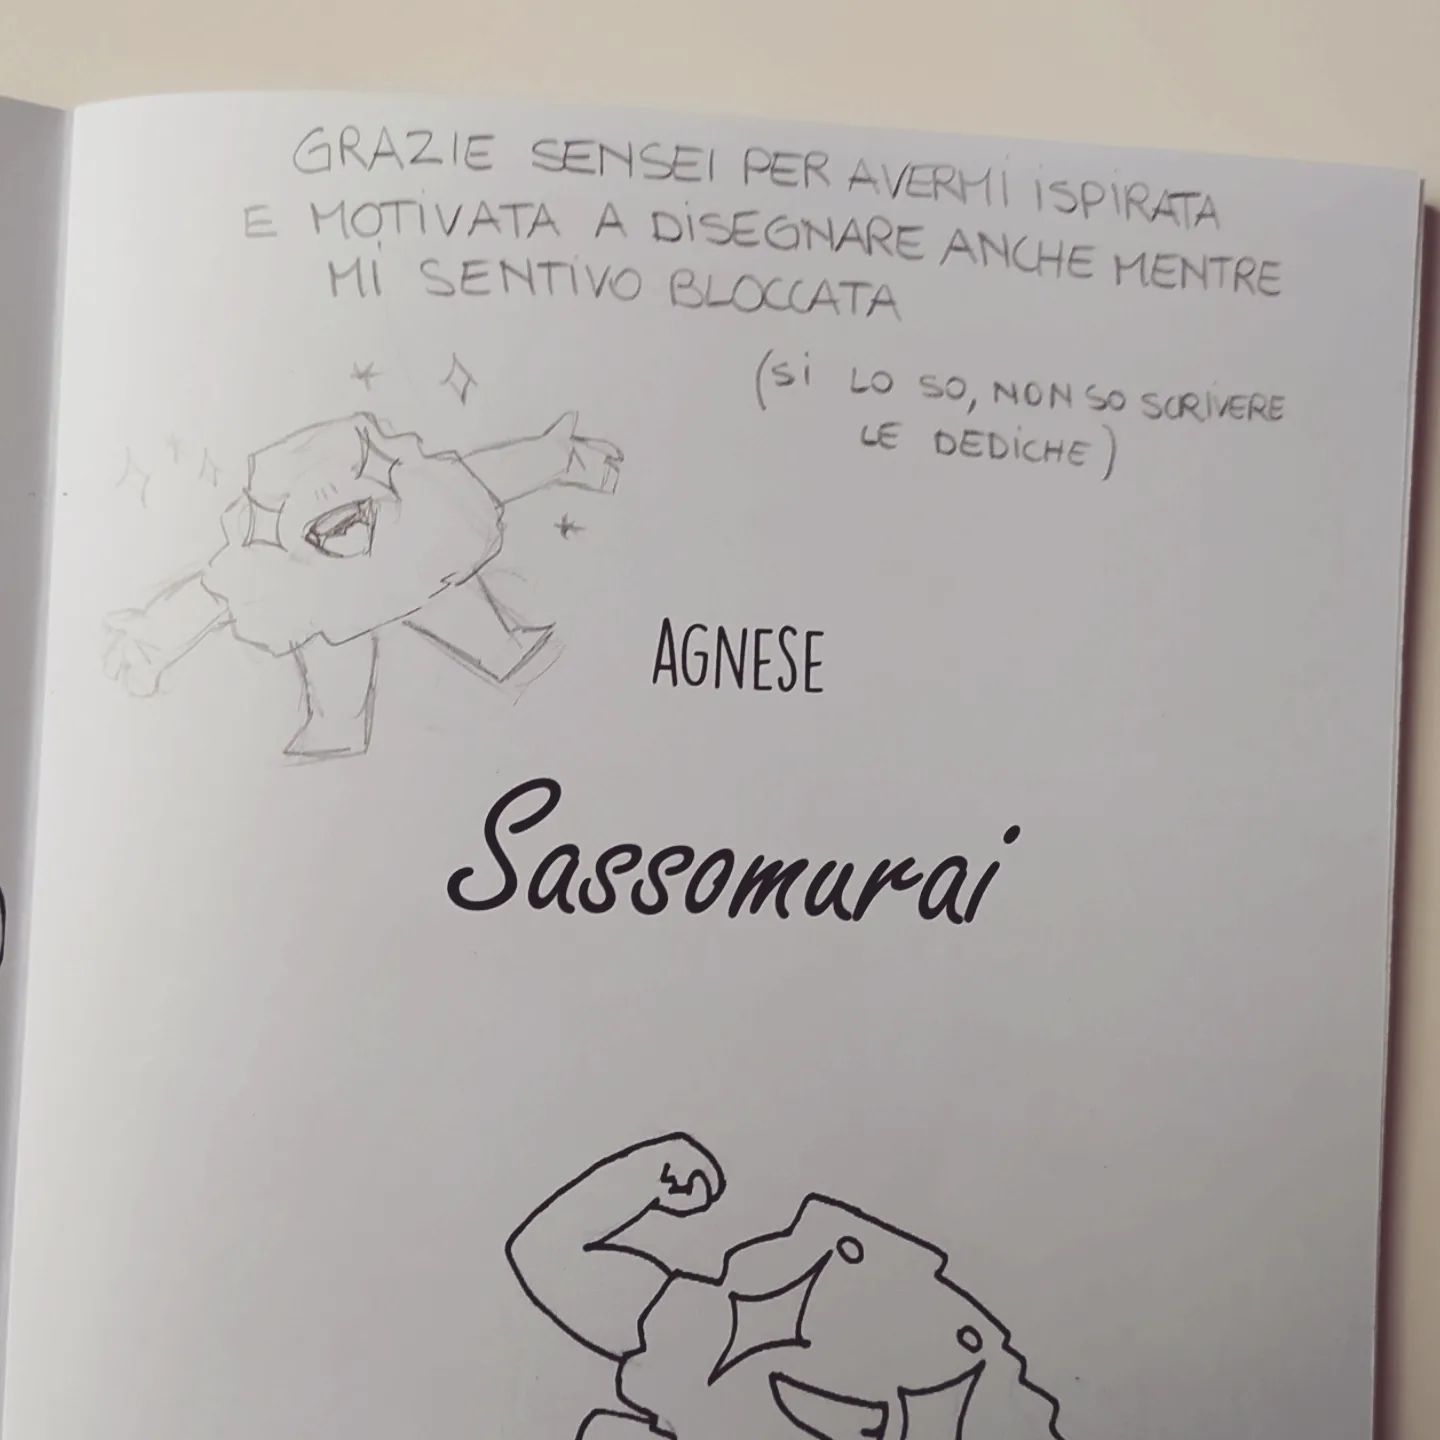 GRAZIE SENSEI PER AVERMI ISPIRATA
E MOTIVATA A DISEGNARE ANCHE MENTRE
MI SENTIVO BLOCCATA
(SI LO SO, NON SO SCRIVERE
LE DEDICHE)
AGNESE
Sassomurai